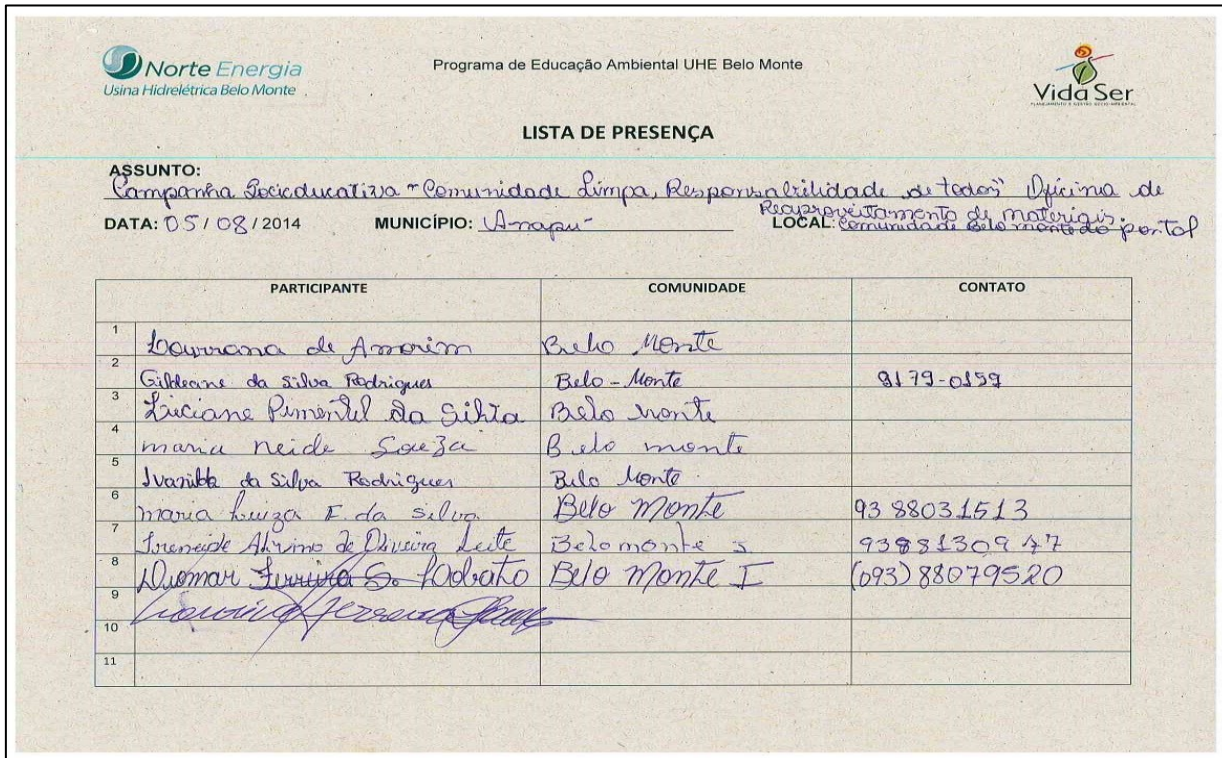 Norte Energia
Usina Hidrelétrica Belo Monte
Programa de Educação Ambiental UHE Belo Monte
Vida Ser
LISTA DE PRESENÇA
ASSUNTO:
Campanha Socieducativa "Comunidade Limpa, Responsabilidade de todos" Oficina de
Reaproveitamento de materiais.
DATA: 05/08/2014 MUNICÍPIO: Anapu LOCAL: Comunidade Belo monte do pontal
PARTICIPANTE COMUNIDADE CONTATO
1 de Amorim Belo Monte
2 Gildeane da Silva Rodrigues Belo-Monte 9179-0159
3 Luciane Pimentel da Silva Belo monte
4 maria neide Souza Belo monte
5 Ivanilda da Silva Rodrigues Belo Monte
6 maria Luiza F. da Silva Belo Monte 93 88031513
7 de Oliveira Leite Belomonte 9388130977
8 Ferreira S. Lobato Belo Monte I (093) 88079520
9 Ferreira
10
11